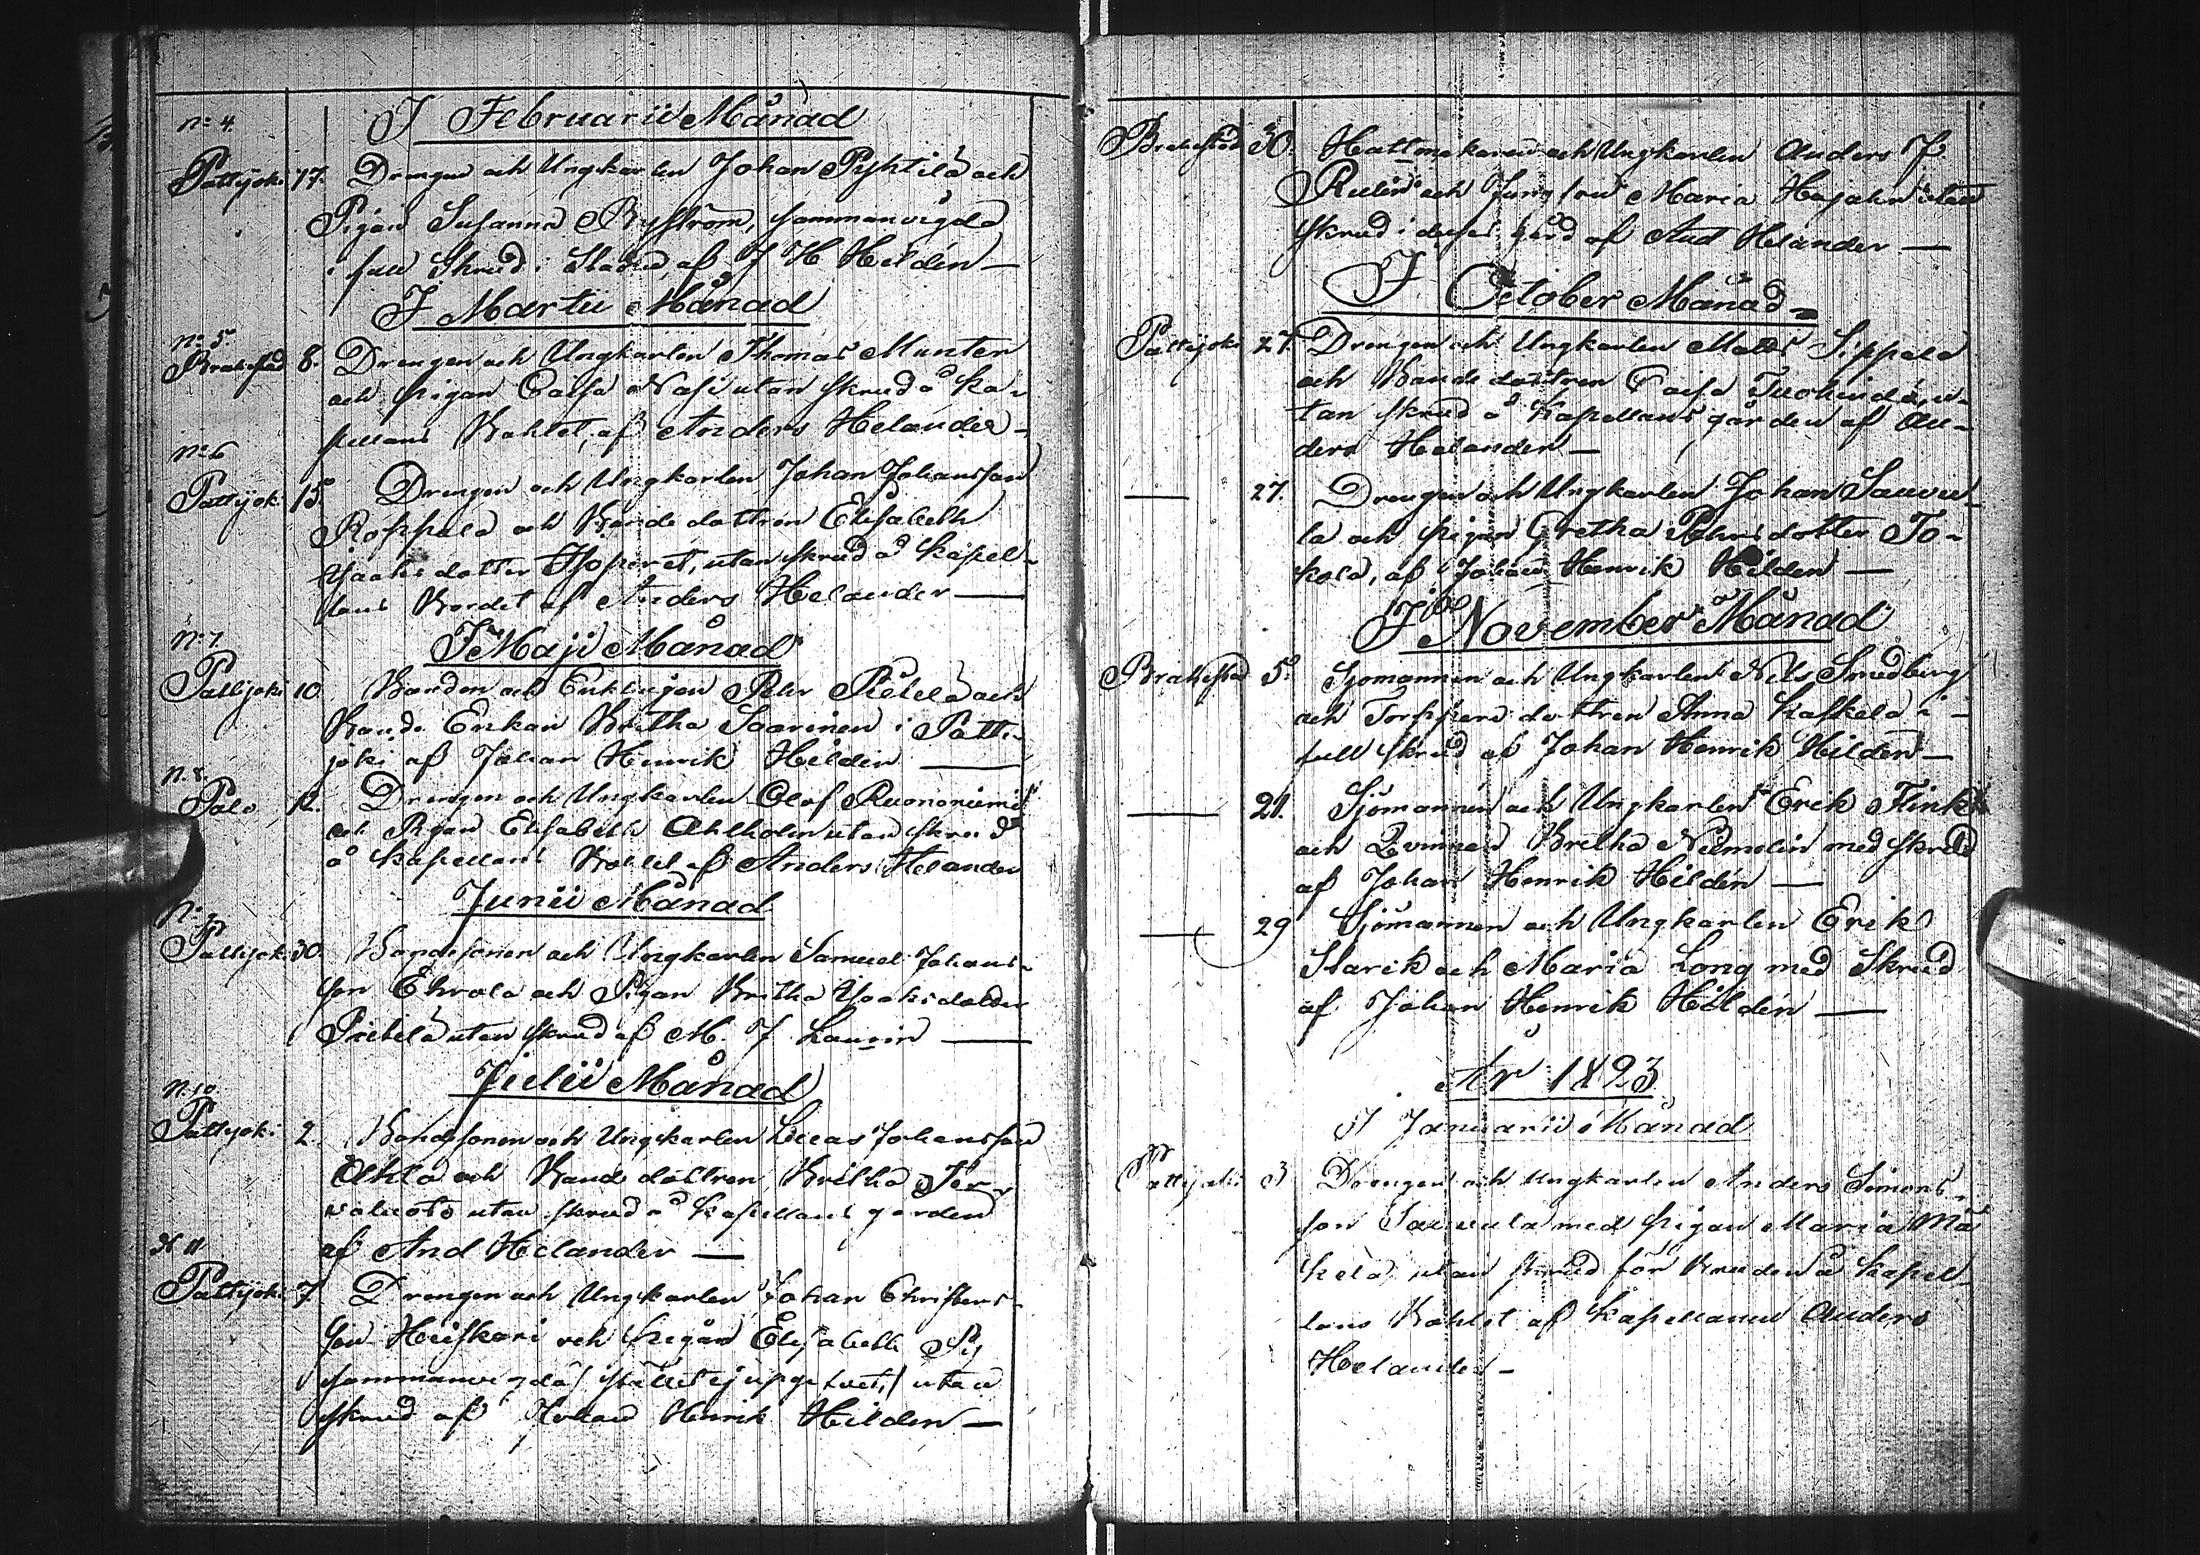 I Februarii Månad
No 4.
Pattijoki 17. Drengen och Ungkarlen Johan Pyhtilä och
Pigan Susanna Byström, sammanvigde
i full Skrud i Staden af J H Heldén —
I Martii Månad
No 5.
Brahestad 8. Drengen och Ungkarlen Thomas Munter
och pigan Caisa Nasi utan skrud å Ka-
pellans Bohlet, af Anders Helander —
No 6
Pattijoki 15 Drengen och Ungkarlen Johan Johansson
Roppola och Bonde dottren Elisabeth
Isaaks dotter utan skrud å Kapel-
lans Bordet af Anders Helander —
No 7
I Maji Månad
Pattijoki 10. Bonden och Enklingen Pehr Pietilä och
Bonde Enkan Britha Saarinen i Patti-
joki af Johan Henrik Heldén —
N. 8
Palo 12. Drengen och Ungkarlen Olof Ruononiemi
och Pigan Elisabeth Ahlholm utan skrud
å Kapellans Bohlet af Anders Helander
Junii Månad
N. 9
Pattijoki 30. Bondesonen och Ungkarlen Samuel Johans-
son Ehrola och Pigan Britha Isaksdotter
Pietilä utan skrud af M. J Laurin —
Julii Månad
N. 10
Pattijoki 2. Bondesonen och Ungkarlen Lucas Johansson
Ahla och Bonde dottren Britha Jer-
valuoto utan skrud å Kapellans gården
af And Helander —
N 11
Pattijoki 7 Drengen och Ungkarlen Johan Christens-
son Heiskari och pigan Elisabeth Pij
sammanvigda / stället ej upgifvet, / utan
skrud af Johan Henrik Heilden —
Brahestad 30. Hattmakaren och Ungkarlen Anders J
Rulin och Jungfrun Maria Hajahn utan
skrud i dess gård af And Helander —
I October Månad —
Pattijoki 27. Drengen och Ungkarlen Matts Sippola
och Bonde dottren Caisa u-
tan skrud å Kapellans gården af An-
ders Helander —
— 27. Drengen och Ungkarlen Johan Sauvu-
la och pigan Gretha Pehrsdotter To-
kola, af Johan Henrik Hilden —
I November Månad
Brahestad 5. Sjömannen och Ungkarlen Nils Smedberg
och Torppare dottren Anna Kaskela i
full skrud af Johan Henrik Hilden —
— 21. Sjömannen och Ungkarlen Erik Fink
och Qvinnan Britha Nielmolin med skrud
af Johan Henrik Hildén —
— 29 Sjömannen och Ungkarlen Erik
Starik och Maria Long med Skrud
af Johan Henrik Hildén —
År 1823
I Januarii Månad
Pattijoki 3 Drengen och ungkarlen Anders Simons-
son Sauvula med pigan Maria Mä
kelä utan skrud för Bruden å Kapel-
lans Bohlet af Kapellanen Anders
Helander —